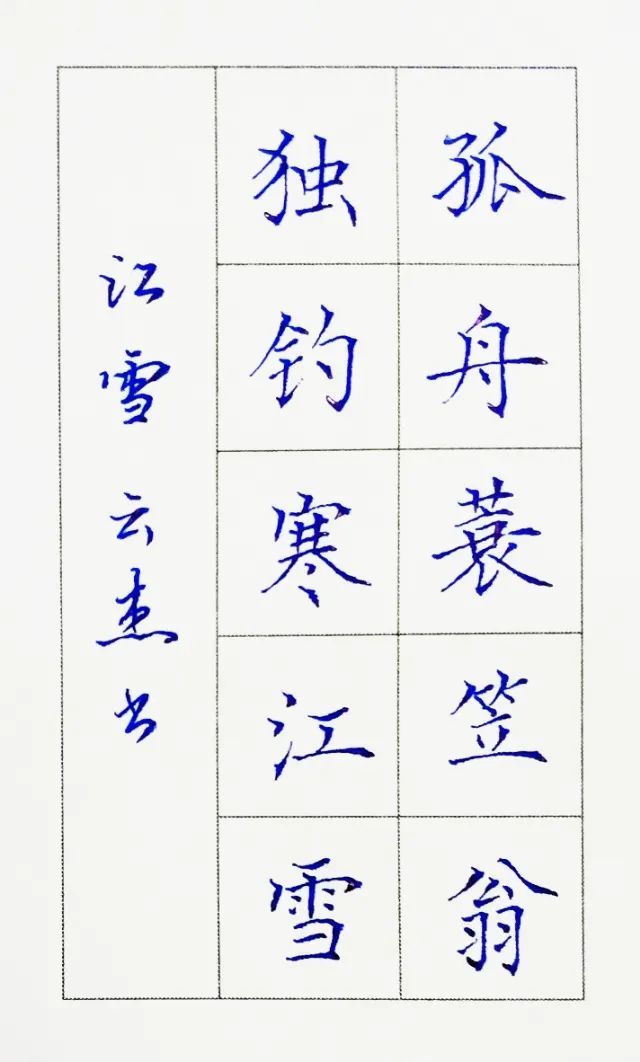 孤舟蓑笠翁
独钓寒江雪
江雪 云杰书